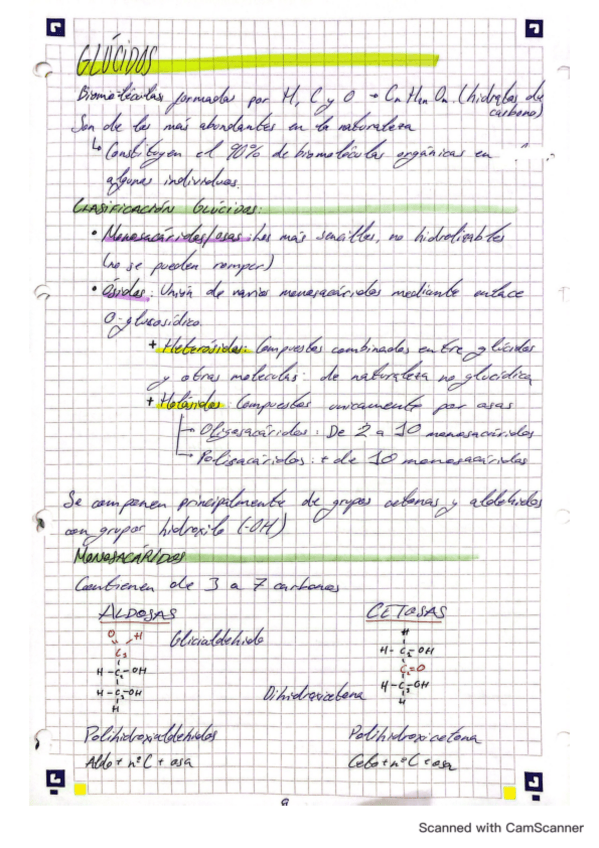 GLÚCIDOS
Biomoléculas formadas por H, C y O → Cn H2n On (hidratos de
carbono)
Son de las más abundantes en la naturaleza
↳ Constituyen el 90% de biomoléculas orgánicas en
algunos individuos.
CLASIFICACIÓN GLÚCIDOS:
• Monosacáridos/osas: Los más sencillos, no hidrolizables
(no se pueden romper)
• Ósidos: Unión de varios monosacáridos mediante enlace
O-glucosídico.
+ Heterósidos: Compuestos combinados entre glúcidos
y otras moléculas: de naturaleza no glucídica
+ Holósidos: Compuestos unicamente por osas
Oligosacáridos: De 2 a 10 monosacáridos
Polisacáridos: + de 10 monosacáridos
Se componen principalmente de grupos cetonas y aldehidos
con grupos hidroxilo (-OH)
MONOSACÁRIDOS
Contienen de 3 a 7 carbonos
ALDOSAS CETOSAS
O H Glicialdehido H
C1 H-C1-OH
H-C2-OH C2=O
H-C3-OH Dihidroxicetona H-C3-OH
H H
Polihidroxialdehidos Polihidroxicetona
Aldo + nº C + osa Ceto + nº C + osa
Scanned with CamScanner